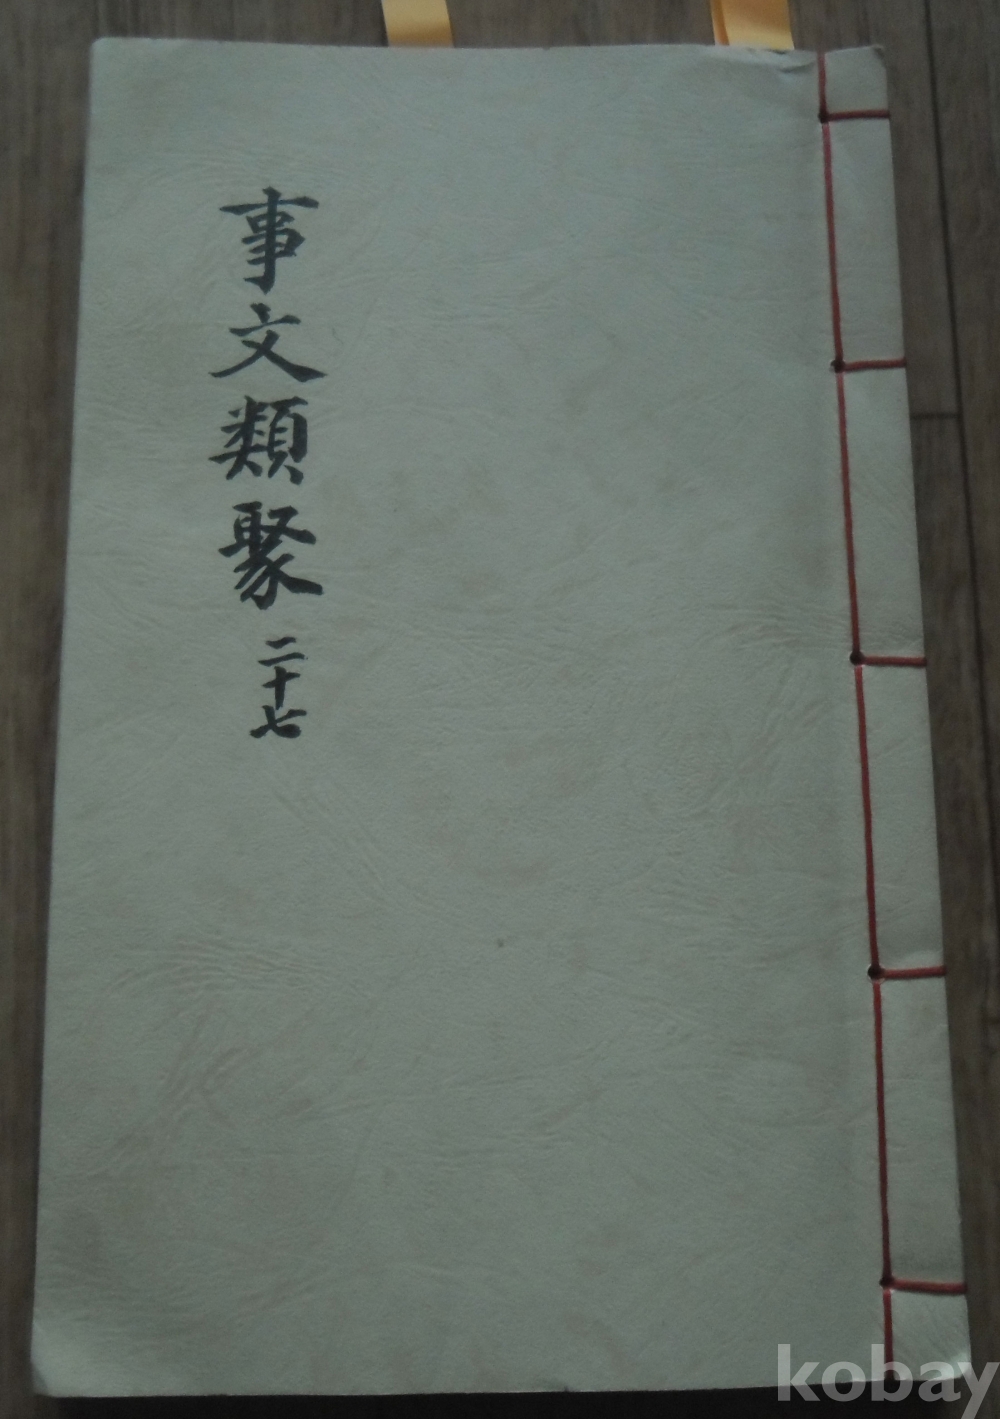 事文類聚 二十七
kobay